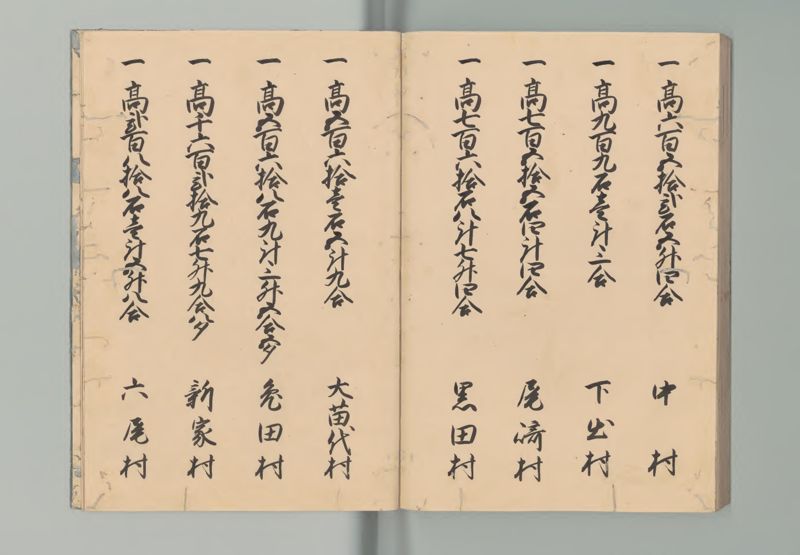 一高六百五拾弐石五升四合 中村
一高九百九石壱斗二合 下出村
一高七百五拾五石四斗四合 尾崎村
一高七百六拾石八斗七升四合 黒田村
一高五百六拾壱石五斗九合 大苗代村
一高五百六拾八石九斗二升五合五夕 兎田村
一高千六百弐拾九石七升九合八夕 新家村
一高弐百八拾八石壱斗五升八合 六尾村